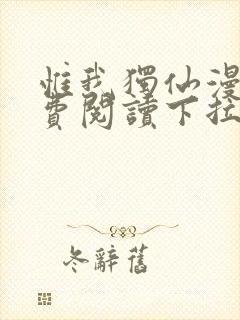 惟我獨仙漫
費閱讀下拉
冬辭舊